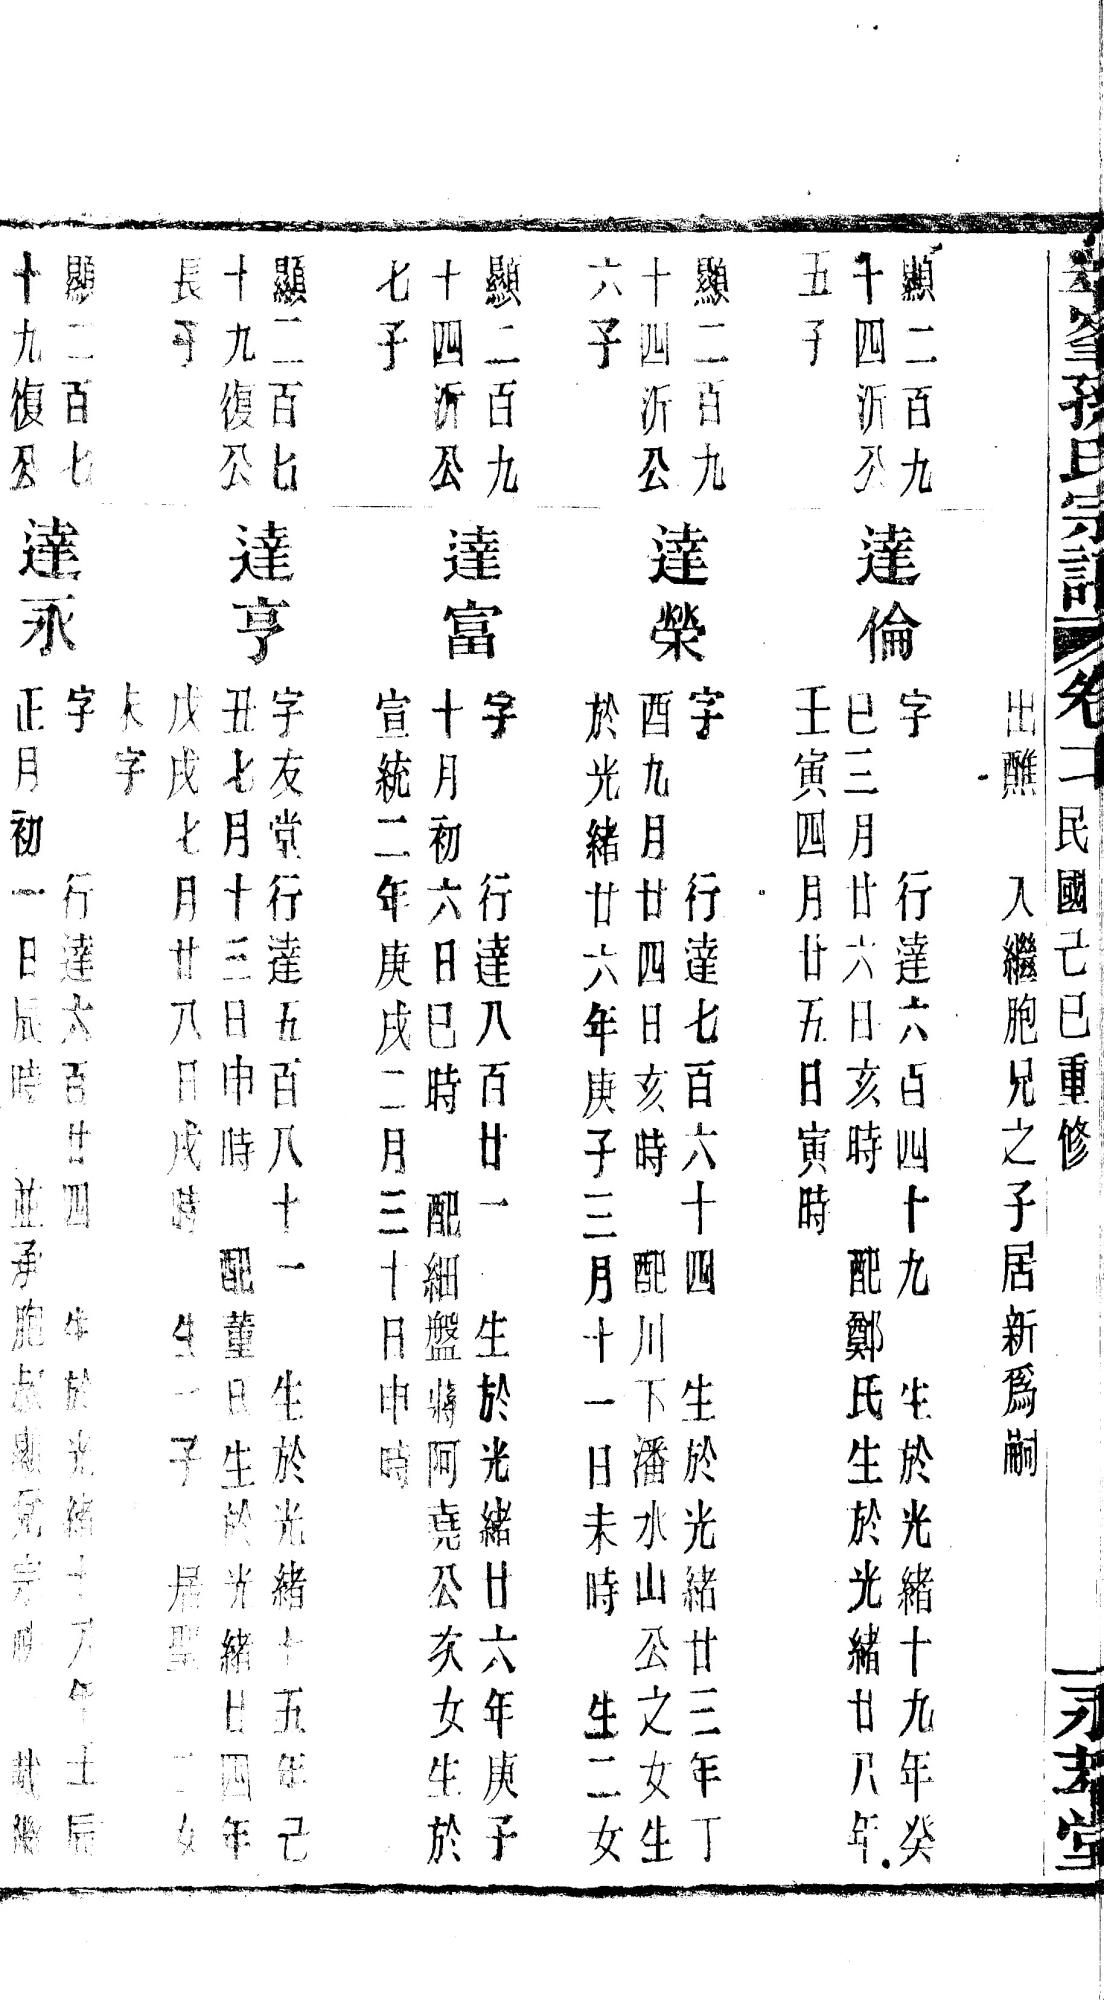 孫氏宗譜 卷二 民國己巳重修
堂
出醮 入繼胞兄之子居新爲嗣
顯二百九
十四沂公
五子
達倫
字 行達六百四十九 生於光緒十九年癸
巳三月廿六日亥時 配鄭氏生於光緒廿八年
壬寅四月廿五日寅時
顯二百九
十四沂公
六子
達榮
字 行達七百六十四 生於光緒廿三年丁
酉九月廿四日亥時 配川下潘水山公之女生
於光緒廿六年庚子三月十一日未時 生二女
顯二百九
十四沂公
七子
達富
字 行達八百廿一 生於光緒廿六年庚子
十月初六日巳時 配細盤蔣阿堯公次女生於
宣統二年庚戌二月三十日申時
顯二百七
十九復公
長子
達亨
字友棠行達五百八十一 生於光緒十五年己
丑七月十三日申時 配董氏生於光緒廿四年
戊戌七月廿八日戌時 生一子 居聖 二女
未字
顯二百七
十九復公
達永
字 行達六百廿四 生於光緒十八年壬辰
正月初一日辰時 並承胞叔顯